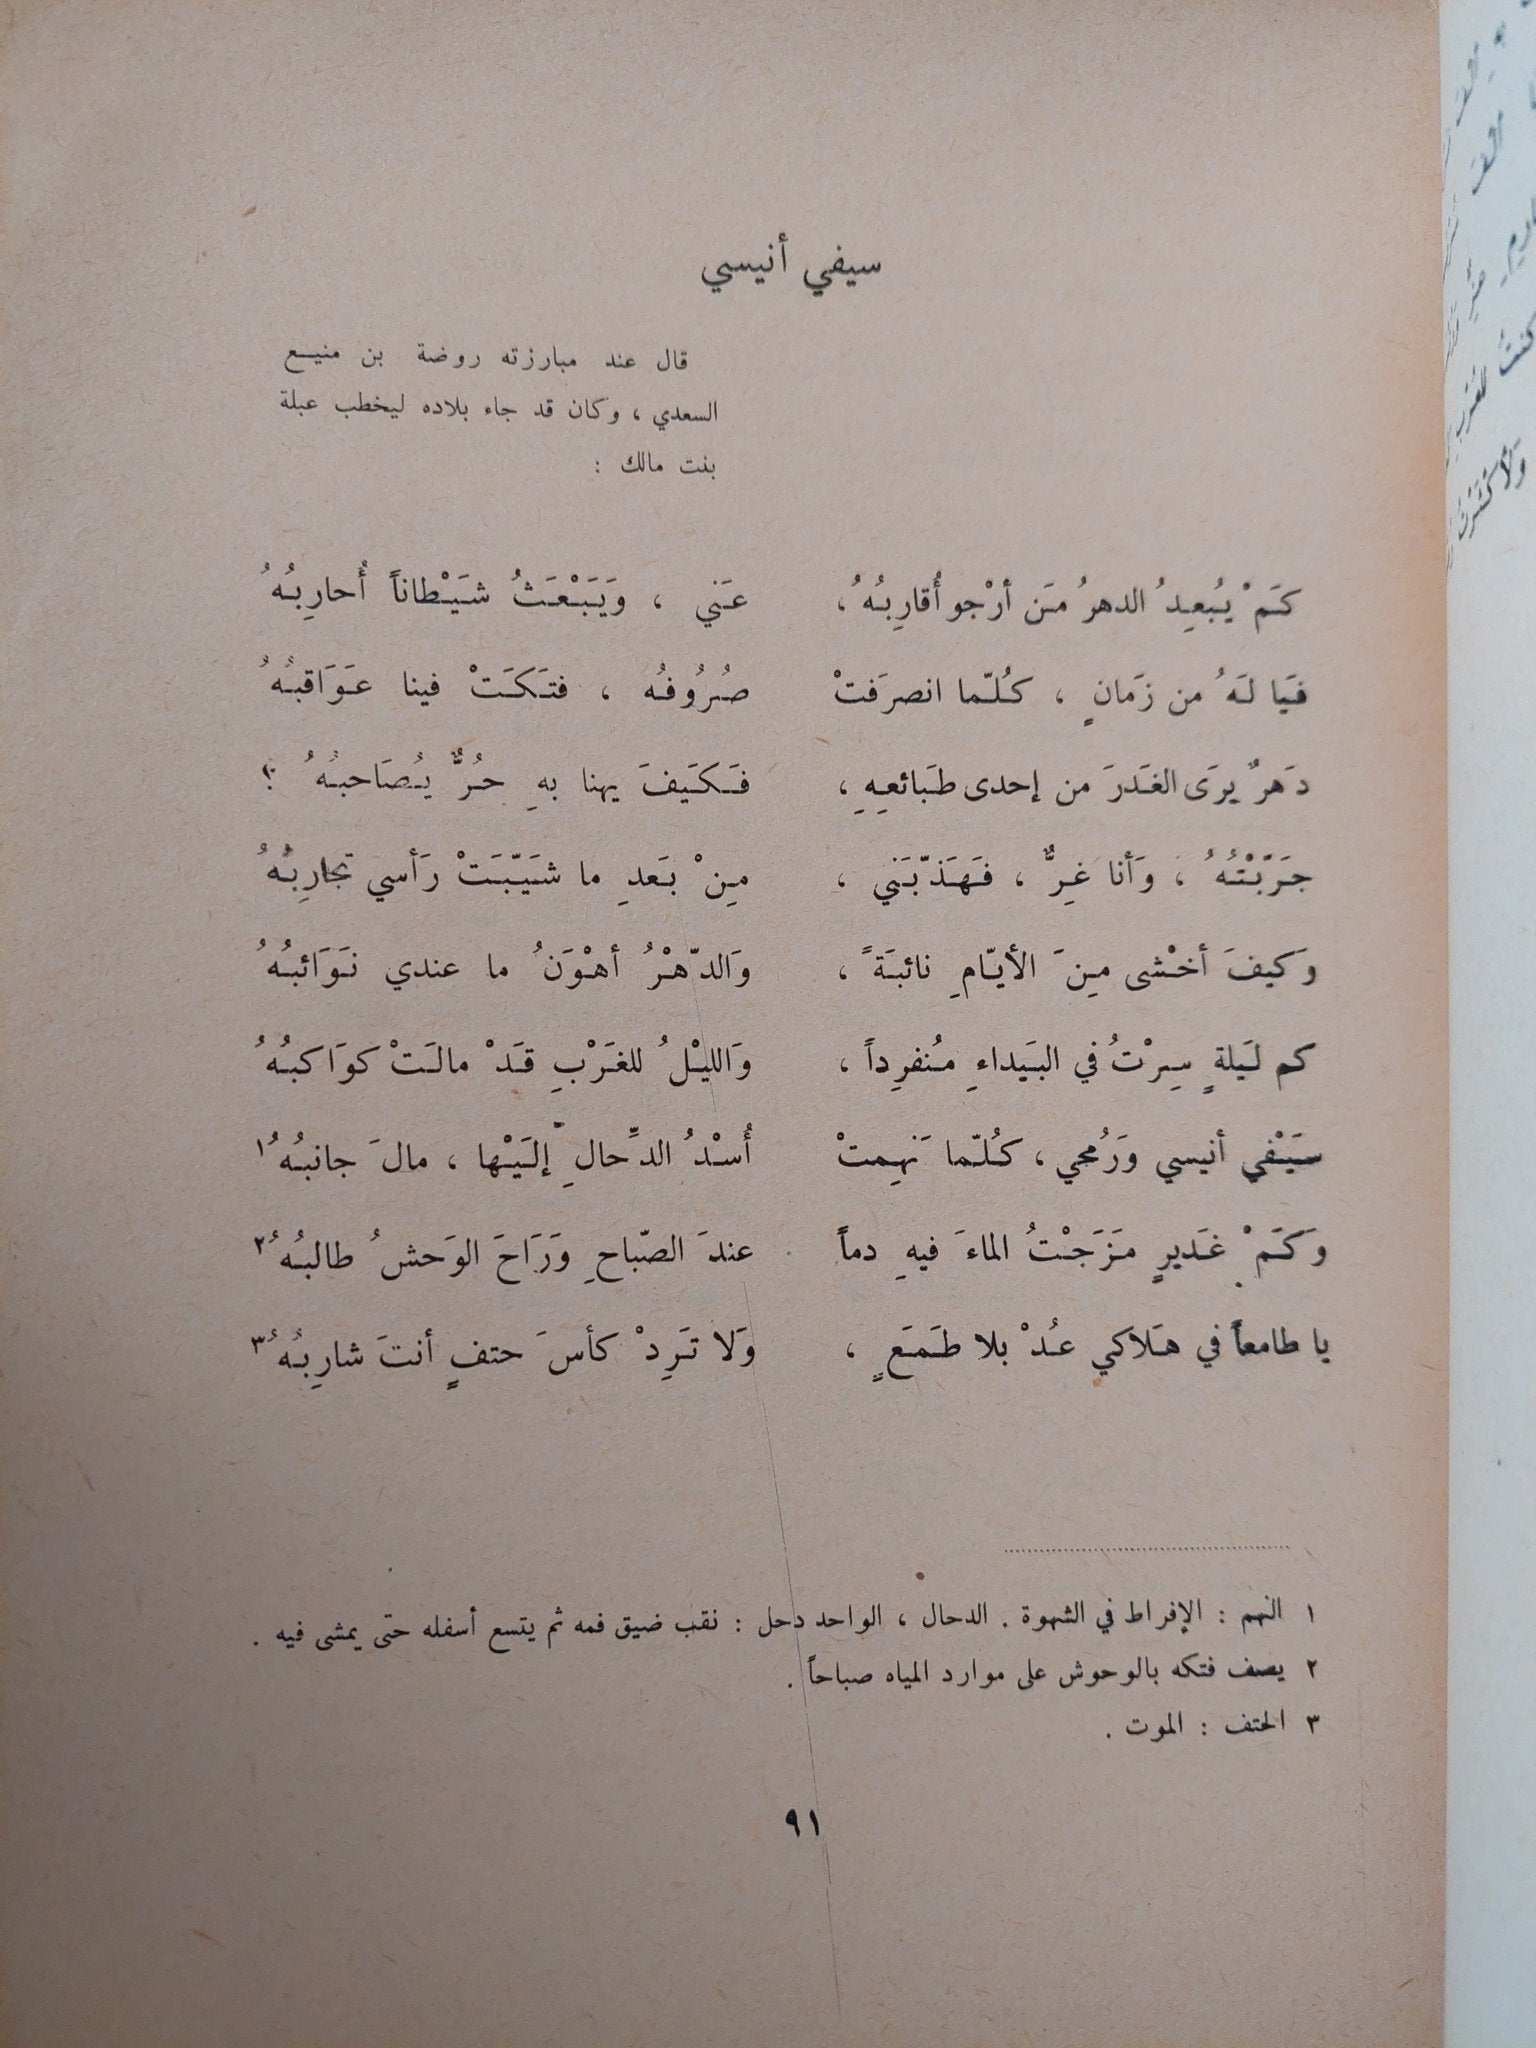 سيفي أنيسي
قال عند مبارزته روضة بن منيع
السعدي ، وكان قد جاء بلاده ليخطب عبلة
بنت مالك :
كَمْ يُبعِدُ الدهرُ مَن أرْجو أُقارِبُهُ ، عَني ، وَيَبْعَثُ شَيْطاناً أُحارِبُهُ
فَيا لَهُ من زَمانٍ ، كُلّما انصرَفتْ صُرُوفُه ، فتَكَتْ فينا عَوَاقبُهُ
دَهرٌ يرَى الغَدرَ من إحدى طَبائعِهِ ، فَكَيفَ يهنا بهِ حُرٌّ يُصَاحبُهُ ؟
جَرّبْتُهُ ، وَأنا غِرٌّ ، فَهَذّبَني ، مِنْ بَعدِ ما شَيّبَتْ رَأسي تجارِبُهُ
وَكيفَ أخْشى مِنَ الأيّامِ نائبَةً ، وَالدّهْرُ أهْوَنُ ما عندي نَوَائبُهُ
كم لَيلةٍ سِرْتُ في البَيداءِ مُنفرِداً ، وَالليْلُ للغَرْبِ قَدْ مالَتْ كوَاكبُهُ
سَيْفي أنيسي وَرُمحي ، كُلّما نَهِمتْ أُسْدُ الدِّحالِ إلَيْها ، مالَ جانبُهُ١
وَكَمْ غَديرٍ مَزَجْتُ الماءَ فيهِ دماً عندَ الصّباحِ وَرَاحَ الوَحشُ طالبُهُ٢
يا طامعاً في هَلاكي عُدْ بلا طَمَعٍ ، وَلا تَرِدْ كأسَ حتفٍ أنتَ شارِبُهُ٣
١ النهم : الإفراط في الشهوة . الدحال ، الواحد دحل : نقب ضيق فمه ثم يتسع أسفله حتى يمشى فيه .
٢ يصف فتكه بالوحوش على موارد المياه صباحاً .
٣ الحتف : الموت .
٩١